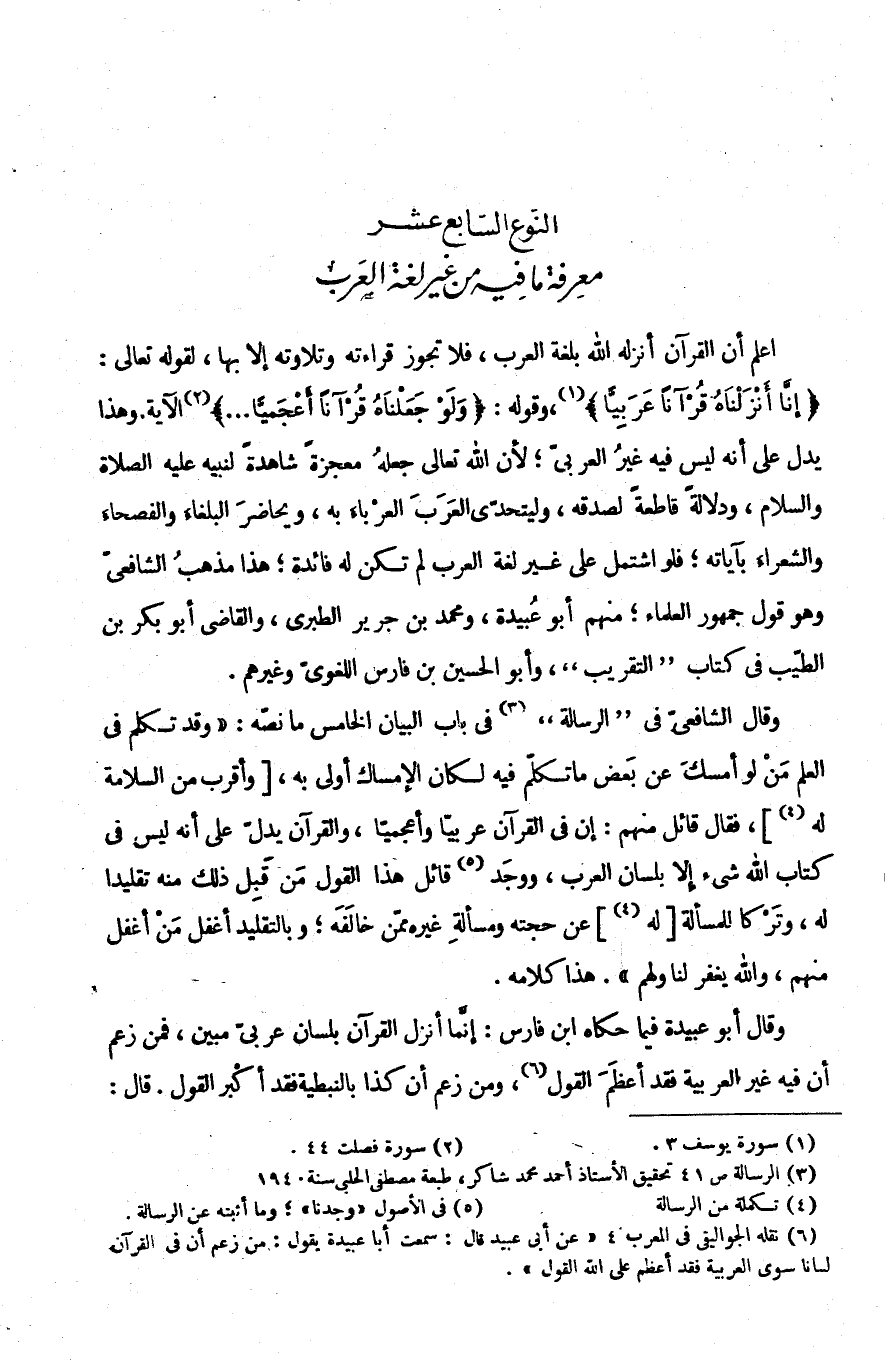 النوع السابع عشر
معرفة ما فيه من غير لغة العرب
اعلم أن القرآن أنزله الله بلغة العرب ، فلا تجوز قراءته وتلاوته إلا بها ، لقوله تعالى :
﴿ إِنَّا أَنْزَلْنَاهُ قُرْآنًا عَرَبِيًّا ﴾(١)،وقوله : ﴿ وَلَوْ جَعَلْنَاهُ قُرْآنًا أَعْجَمِيًّا...﴾(٢)الآية.وهذا
يدل على أنه ليس فيه غيرُ العربىّ ؛ لأن الله تعالى جعلهُ معجزةً شاهدةً لنبيه عليه الصلاة
والسلام ، ودلالةً قاطعةً لصدقه ، وليتحدّى العَرَبَ العرْباء به ، ويحاضرَ البلغاء والفصحاء
والشعراء بآياته ؛ فلو اشتمل على غير لغة العرب لم تكن له فائدة ؛ هذا مذهبُ الشافعىّ
وهو قول جمهور العلماء ؛ منهم أبو عُبيدة ، ومحمد بن جرير الطبرى ، والقاضى أبو بكر بن
الطيّب فى كتاب ”التقريب“، وأبو الحسين بن فارس اللغوىّ وغيرهم .
وقال الشافعىّ فى ”الرسالة“ (٣) فى باب البيان الخامس ما نصّه : « وقد تكلم فى
العلم مَنْ لو أمسكَ عن بَعض ماتكلّم فيه لكان الإمساك أولى به ، [ وأقرب من السلامة
له (٤) ] ، فقال قائل منهم : إن فى القرآن عربيّا وأعجميّا ، والقرآن يدلّ على أنه ليس فى
كتاب الله شىء إلا بلسان العرب ، ووجَد (٥) قائل هذا القول مَن قَبِل ذلك منه تقليدا
له ، وتَرْكا للمسألة [ له (٤) ] عن حجته ومسألةِ غيره ممّن خالَفَه ؛ وبالتقليد أغفل مَنْ أغفل
منهم ، والله يغفر لنا ولهم » . هذا كلامه .
وقال أبو عبيدة فيما حكاه ابن فارس : إنَّما أنزل القرآن بلسان عربىّ مبين ، فمن زعم
أن فيه غير العربية فقد أعظَمَ القول(٦)، ومن زعم أن كذا بالنبطية فقد أكْبر القول . قال :
(١) سورة يوسف ٣ . (٢) سورة فصلت ٤٤ .
(٣) الرسالة ص ٤١ تحقيق الأستاذ أحمد محمد شاكر ، طبعة مصطفى الحلبى سنة ١٩٤٠
(٤) تكملة من الرسالة (٥) فى الأصول «وجدنا» ؛ وما أثبته عن الرسالة .
(٦) نقله الجواليقى فى المعرب ٤ « عن أبى عبيد قال : سمعت أبا عبيدة يقول : من زعم أن فى القرآن
لسانا سوى العربية فقد أعظم على الله القول » .